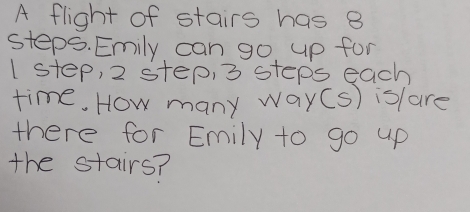 A flight of stairs has 8
steps. Emily can go up for
1 step, 2 step, 3 steps each
time. How many way(s) is/are
there for Emily to go up
the stairs?